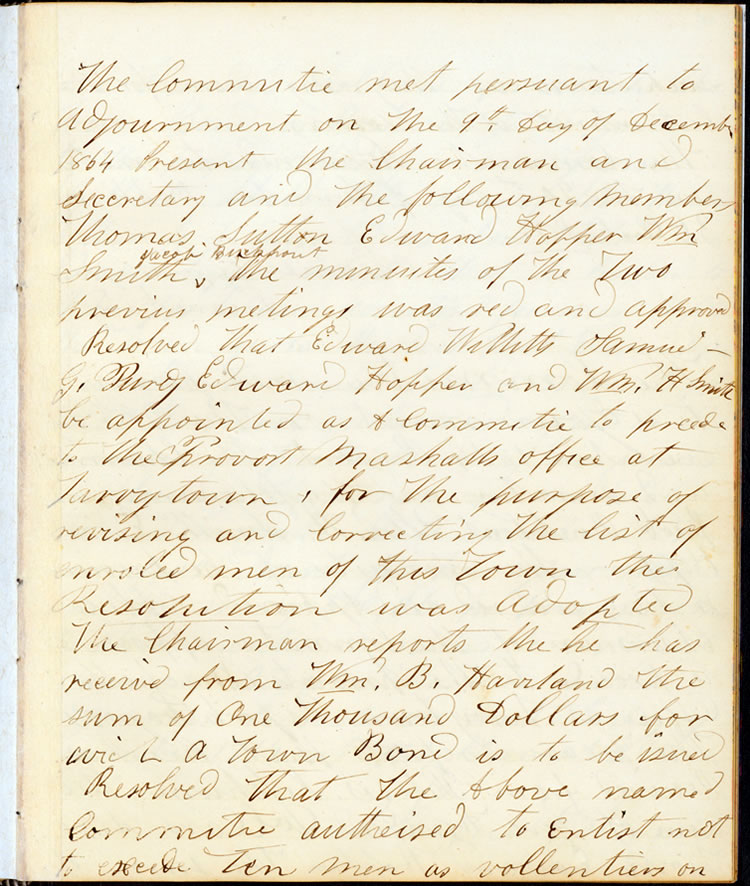 The Committie met persuant to
adjournment on the 9th. Day of Decemb
1864 Present the Chairman and
Secretary and the following members
Thomas Sutton Edward Hopper Wm
Jacob
Smith, the minuites of the Two
previus metings was red and approved
Resolved that Edward Willitts Samuel
G. Purdy Edward Hopper and Wm. H Smith
be appointed as A Committie to precede
to the Provort Mashalls office at
Tarrytown, for the purpose of
revising and Correcting the list of
enroled men of this Town the
Resolution was Adopted
The Chairman reports the he has
receive from Wm. B. Haviland the
sum of One Thousand Dollars for
wich A Town Bond is to be issued
Resolved that the Above named
Committie autheised to Entist not
to excede Ten men as vollentiers on